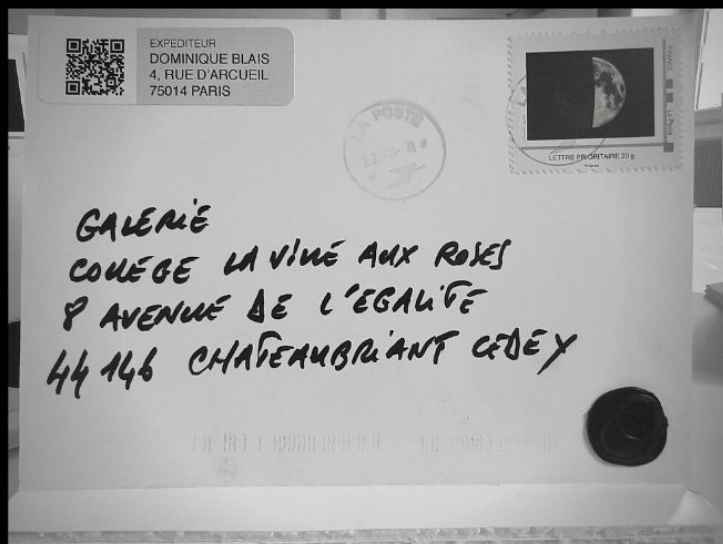 EXPEDITEUR
DOMINIQUE BLAIS
4, RUE D'ARCUEIL
75014 PARIS
LA POSTE
FRANCE
La Poste
LETTRE PRIORITAIRE 20 g
GALERIE
COLLÈGE LA VILLE AUX ROSES
8 AVENUE DE L'EGALITE
44146 CHATEAUBRIANT CEDEX